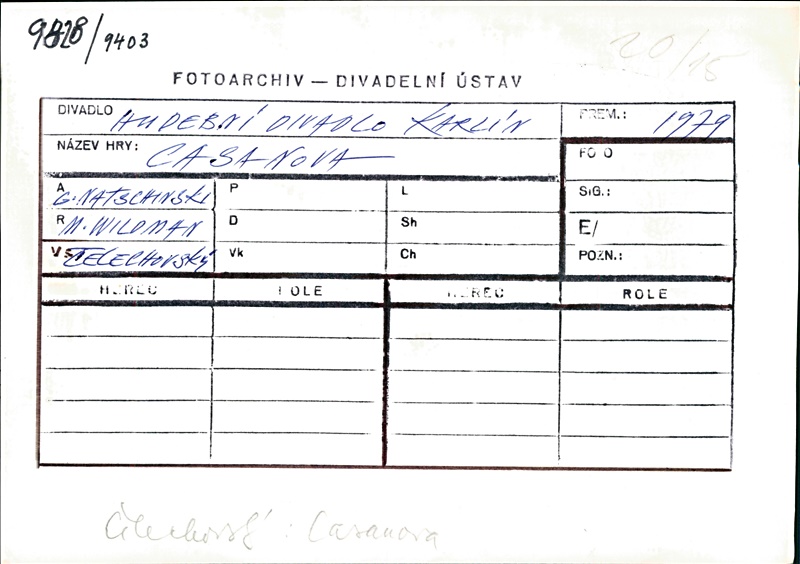 9828/9403
20/15
FOTOARCHIV — DIVADELNÍ ÚSTAV
DIVADLO HUDEBNÍ DIVADLO KARLÍN PREM.: 1979
NÁZEV HRY: CASANOVA FOTO
A G. NATSCHINSKI P L SIG.:
R M. WILDMAN D Sh E/
Vs ČELECHOVSKÝ Vk Ch POZN.:
HEREC ROLE HEREC ROLE
: Casanova